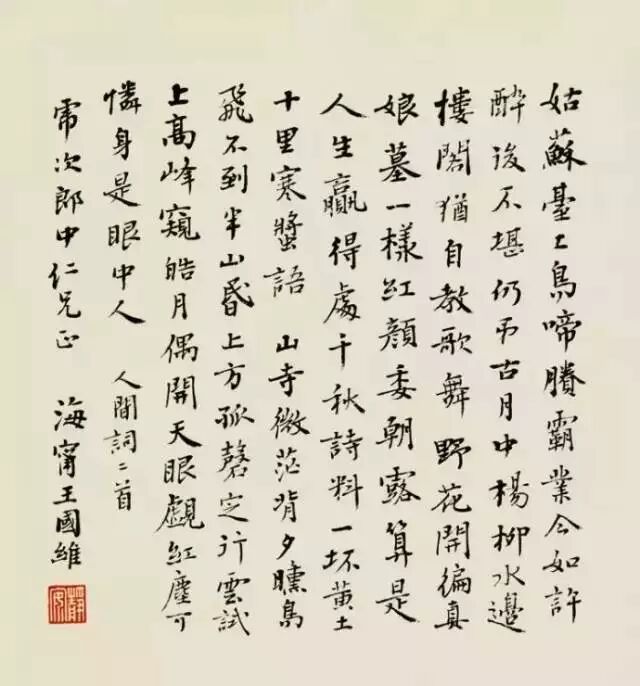 姑蘇臺上烏啼賸霸業今如許
醉後不堪仍弔古月中楊柳水邊
樓閣猶自教歌舞 野花開徧真
娘墓一樣紅顏委朝露算是
人生贏得處千秋詩料一抔黃土
十里寒螿語 山寺微茫背夕曛鳥
飛不到半山昏上方孤磬定行雲試
上高峰窺皓月偶開天眼覷紅塵可
憐身是眼中人 人間詞二首
次郎中仁兄正 海甯王國維
靜安